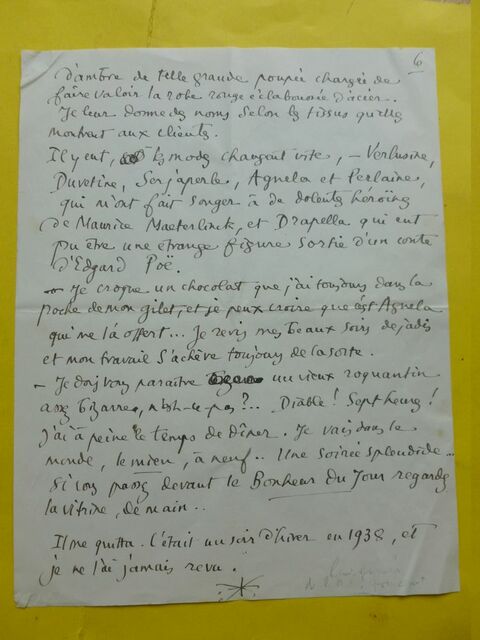 6
d'ambre de telle grande poupée chargée de
faire valoir la robe rouge à la bouée d'acier.
Je leur donne des noms selon les tissus qu'elles
montrent aux clients.
Il y eut, les modes changent vite, – Verlusine,
Duvetine, Serjaperle, Agnela et Perlaine,
qui m'ont fait songer à de dolentes héroïnes
de Maurice Maeterlinck, et Drapella qui eut
pu être une étrange figure sortie d'un conte
d'Edgard Poë.
– Je croque un chocolat que j'ai toujours dans la
poche de mon gilet, et je peux croire que c'est Agnela
qui me l'a offert... Je revis mes beaux soirs de jadis
et mon travail s'achève toujours de la sorte.
– Je dois vous paraître un vieux roquantin
assez bizarre, n'est-ce-pas ?.. Diable ! Sept heures !
J'ai à peine le temps de dîner. Je vais dans le
monde, le mien, à neuf.. Une soirée splendide...
Si vous passez devant le Bonheur du Jour regardez
la vitrine, demain..
Il me quitta. C'était un soir d'hiver en 1938, et
je ne l'ai jamais revu.